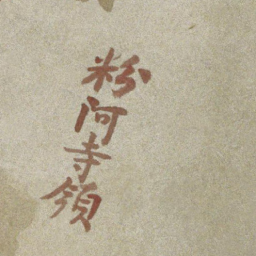 粉河寺領